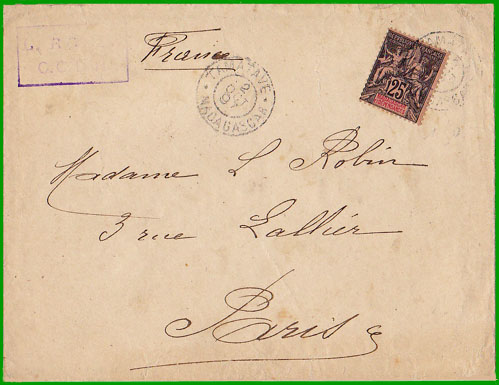 L. R.
C. C
France
TAMATAVE
MADAGASCAR
25
Madame L Robin
3 rue Lallier
Paris